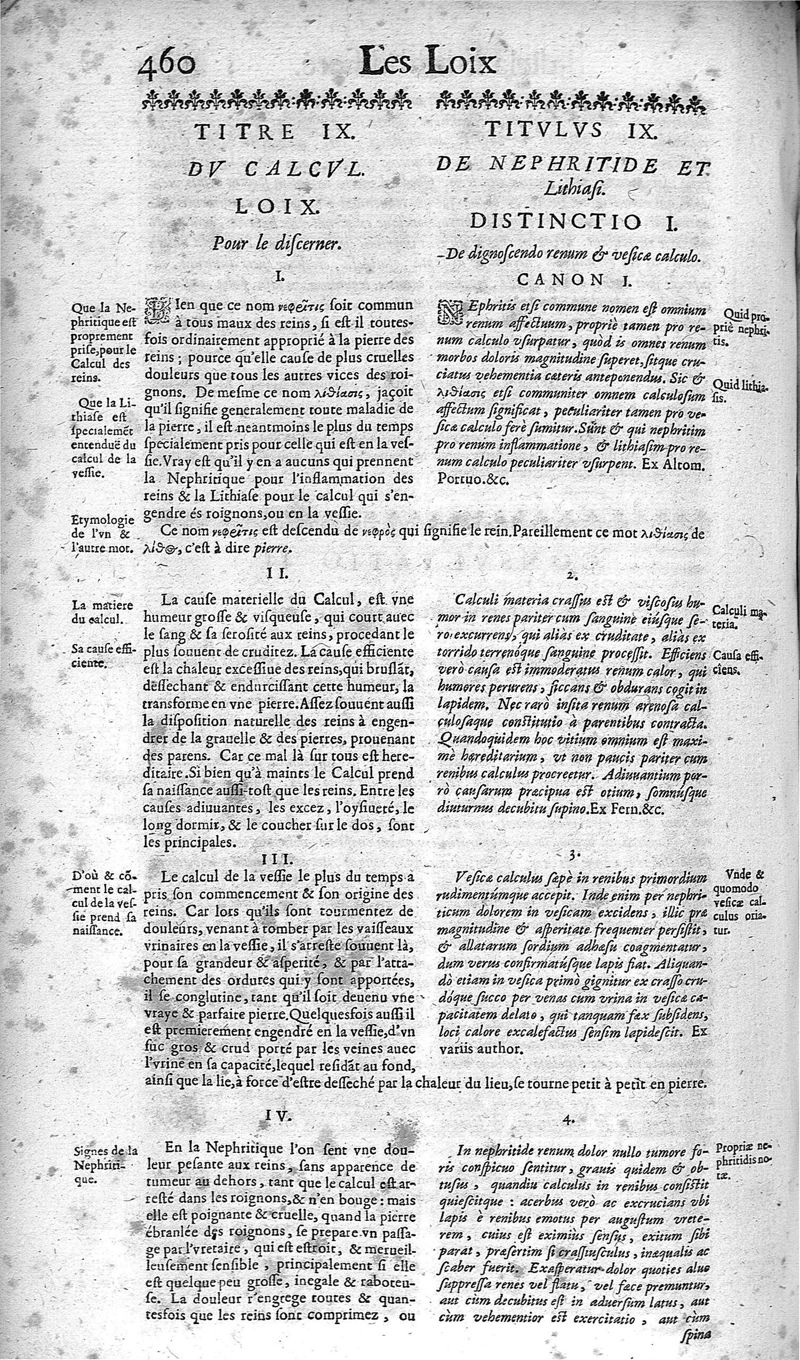 460
Les Loix
TITRE IX.
DV CALCVL.
LOIX.
Pour le discerner.
I.
Que la Ne-
phritique est
proprement
prise, pour le
Calcul des
reins.
Que la Li-
thiase est
specialemẽt
entenduë du
calcul de la
vessie.
Etymologie
de l'vn &
l'autre mot.
BIen que ce nom νεφρῖτις soit commun
à tous maux des reins, si est il toutes-
fois ordinairement approprié à la pierre des
reins ; pource qu'elle cause de plus cruelles
douleurs que tous les autres vices des roi-
gnons. De mesme ce nom λιθίασις, jaçoit
qu'il signifie generalement toute maladie de
la pierre, il est neantmoins le plus du temps
specialement pris pour celle qui est en la ves-
sie. Vray est qu'il y en a aucuns qui prennent
la Nephritique pour l'inflammation des
reins & la Lithiase pour le calcul qui s'en-
gendre és roignons, ou en la vessie.
Ce nom νεφρῖτις est descendu de νεφρὸς qui signifie le rein. Pareillement ce mot λιθίασις de
λίθος, c'est à dire pierre.
TITVLVS IX.
DE NEPHRITIDE ET
Lithiasi.
DISTINCTIO I.
De dignoscendo renum & vesicæ calculo.
CANON I.
NEphritis etsi commune nomen est omnium
renum affectuum, propriè tamen pro re-
num calculo vsurpatur, quòd is omnes renum
morbos doloris magnitudine superet, sitque cru-
ciatus vehementia cæteris anteponendus. Sic &
λιθίασις etsi communiter omnem calculosum
affectum significat, peculiariter tamen pro ve-
sicæ calculo ferè sumitur. Sunt & qui nephritim
pro renum inflammatione, & lithiasim pro re-
num calculo peculiariter vsurpent. Ex Altom.
Portuo. &c.
Quid pro-
priè nephri-
tis.
Quid lithia-
sis.
II.
La matiere
du calcul.
Sa cause effi-
ciente.
La cause materielle du Calcul, est vne
humeur grosse & visqueuse, qui court auec
le sang & sa serosité aux reins, procedant le
plus souuent de cruditez. La cause efficiente
est la chaleur excessiue des reins, qui bruslãt,
dessechant & endurcissant cette humeur, la
transforme en vne pierre. Assez souuent aussi
la disposition naturelle des reins à engen-
drer de la grauelle & des pierres, prouenant
des parens. Car ce mal là sur tous est here-
ditaire. Si bien qu'à maints le Calcul prend
sa naissance aussi-tost que les reins. Entre les
causes adiuuantes, les excez, l'oysiueté, le
long dormir, & le coucher sur le dos, sont
les principales.
2.
Calculi materia crassius est & viscosius hu-
mor in renes pariter cum sanguine eiúsque se-
ro excurrens, qui aliàs ex cruditate, aliàs ex
torrido terrenoque sanguine processit. Efficiens
verò causa est immoderatus renum calor, qui
humores perurens, siccans & obdurans cogit in
lapidem. Nec rarò insita renum arenosa cal-
culosaque constitutio à parentibus contracta.
Quandoquidem hoc vitium omnium est maxi-
mè hæreditarium, vt non paucis pariter cum
renibus calculus procreetur. Adiuuantium por-
rò causarum præcipua est otium, somnúsque
diuturnus decubitu supino. Ex Fern. &c.
Calculi ma-
teria.
Causa effi-
ciens.
III.
D'où & cõ-
ment le cal-
cul de la ves-
sie prend sa
naissance.
Le calcul de la vessie le plus du temps a
pris son commencement & son origine des
reins. Car lors qu'ils sont tourmentez de
douleurs, venant à tomber par les vaisseaux
vrinaires en la vessie, il s'arreste souuent là,
pour sa grandeur & asperité, & par l'atta-
chement des ordures qui y sont apportées,
il se conglutine, tant qu'il soit deuenu vne
vraye & parfaite pierre. Quelquesfois aussi il
est premierement engendré en la vessie, d'vn
suc gros & crud porté par les veines auec
l'vrine en sa capacité, lequel residãt au fond,
ainsi que la lie, à force d'estre desseché par la chaleur du lieu, se tourne petit à petit en pierre.
3.
Vesicæ calculus sæpè in renibus primordium
rudimentúmque accepit. Inde enim per nephri-
ticum dolorem in vesicam excidens, illic præ
magnitudine & asperitate frequenter persistit,
& allatarum sordium adhæsu coagmentatur,
dum verus confirmatúsque lapis fiat. Aliquan-
dò etiam in vesica primò gignitur ex crasso cru-
dóque succo per venas cum vrina in vesicæ ca-
pacitatem delato, qui tanquam fæx subsidens,
loci calore excalefactus sensim lapidescit. Ex
variis author.
Vnde &
quomodo
vesicæ cal-
culus oria-
tur.
IV.
Signes de la
Nephriti-
que.
En la Nephritique l'on sent vne dou-
leur pesante aux reins, sans apparence de
tumeur au dehors, tant que le calcul est ar-
resté dans les roignons, & n'en bouge : mais
elle est poignante & cruelle, quand la pierre
ébranlée des roignons, se prepare vn passa-
ge par l'vretaire, qui est estroit, & merueil-
leusement sensible, principalement si elle
est quelque peu grosse, inegale & raboteu-
se. La douleur r'engrege toutes & quan-
tesfois que les reins sont comprimez, ou
4.
In nephritide renum dolor nullo tumore fo-
ris conspicuo sentitur, grauis quidem & ob-
tusus, quandiu calculus in renibus consistit
quiescitque : acerbus verò ac excrucians vbi
lapis è renibus emotus per augustum vrete-
rem, cuius est eximius sensus, exitum sibi
parat, præsertim si crassiusculus, inæqualis ac
scaber fuerit. Exasperatur dolor quoties aluo
suppressa renes vel flatu, vel fæce premuntur,
aut cùm decubitus est in aduersum latus, aut
cùm vehementior est exercitatio, aut cùm
spina
Propriæ ne-
phritidis no-
tæ.